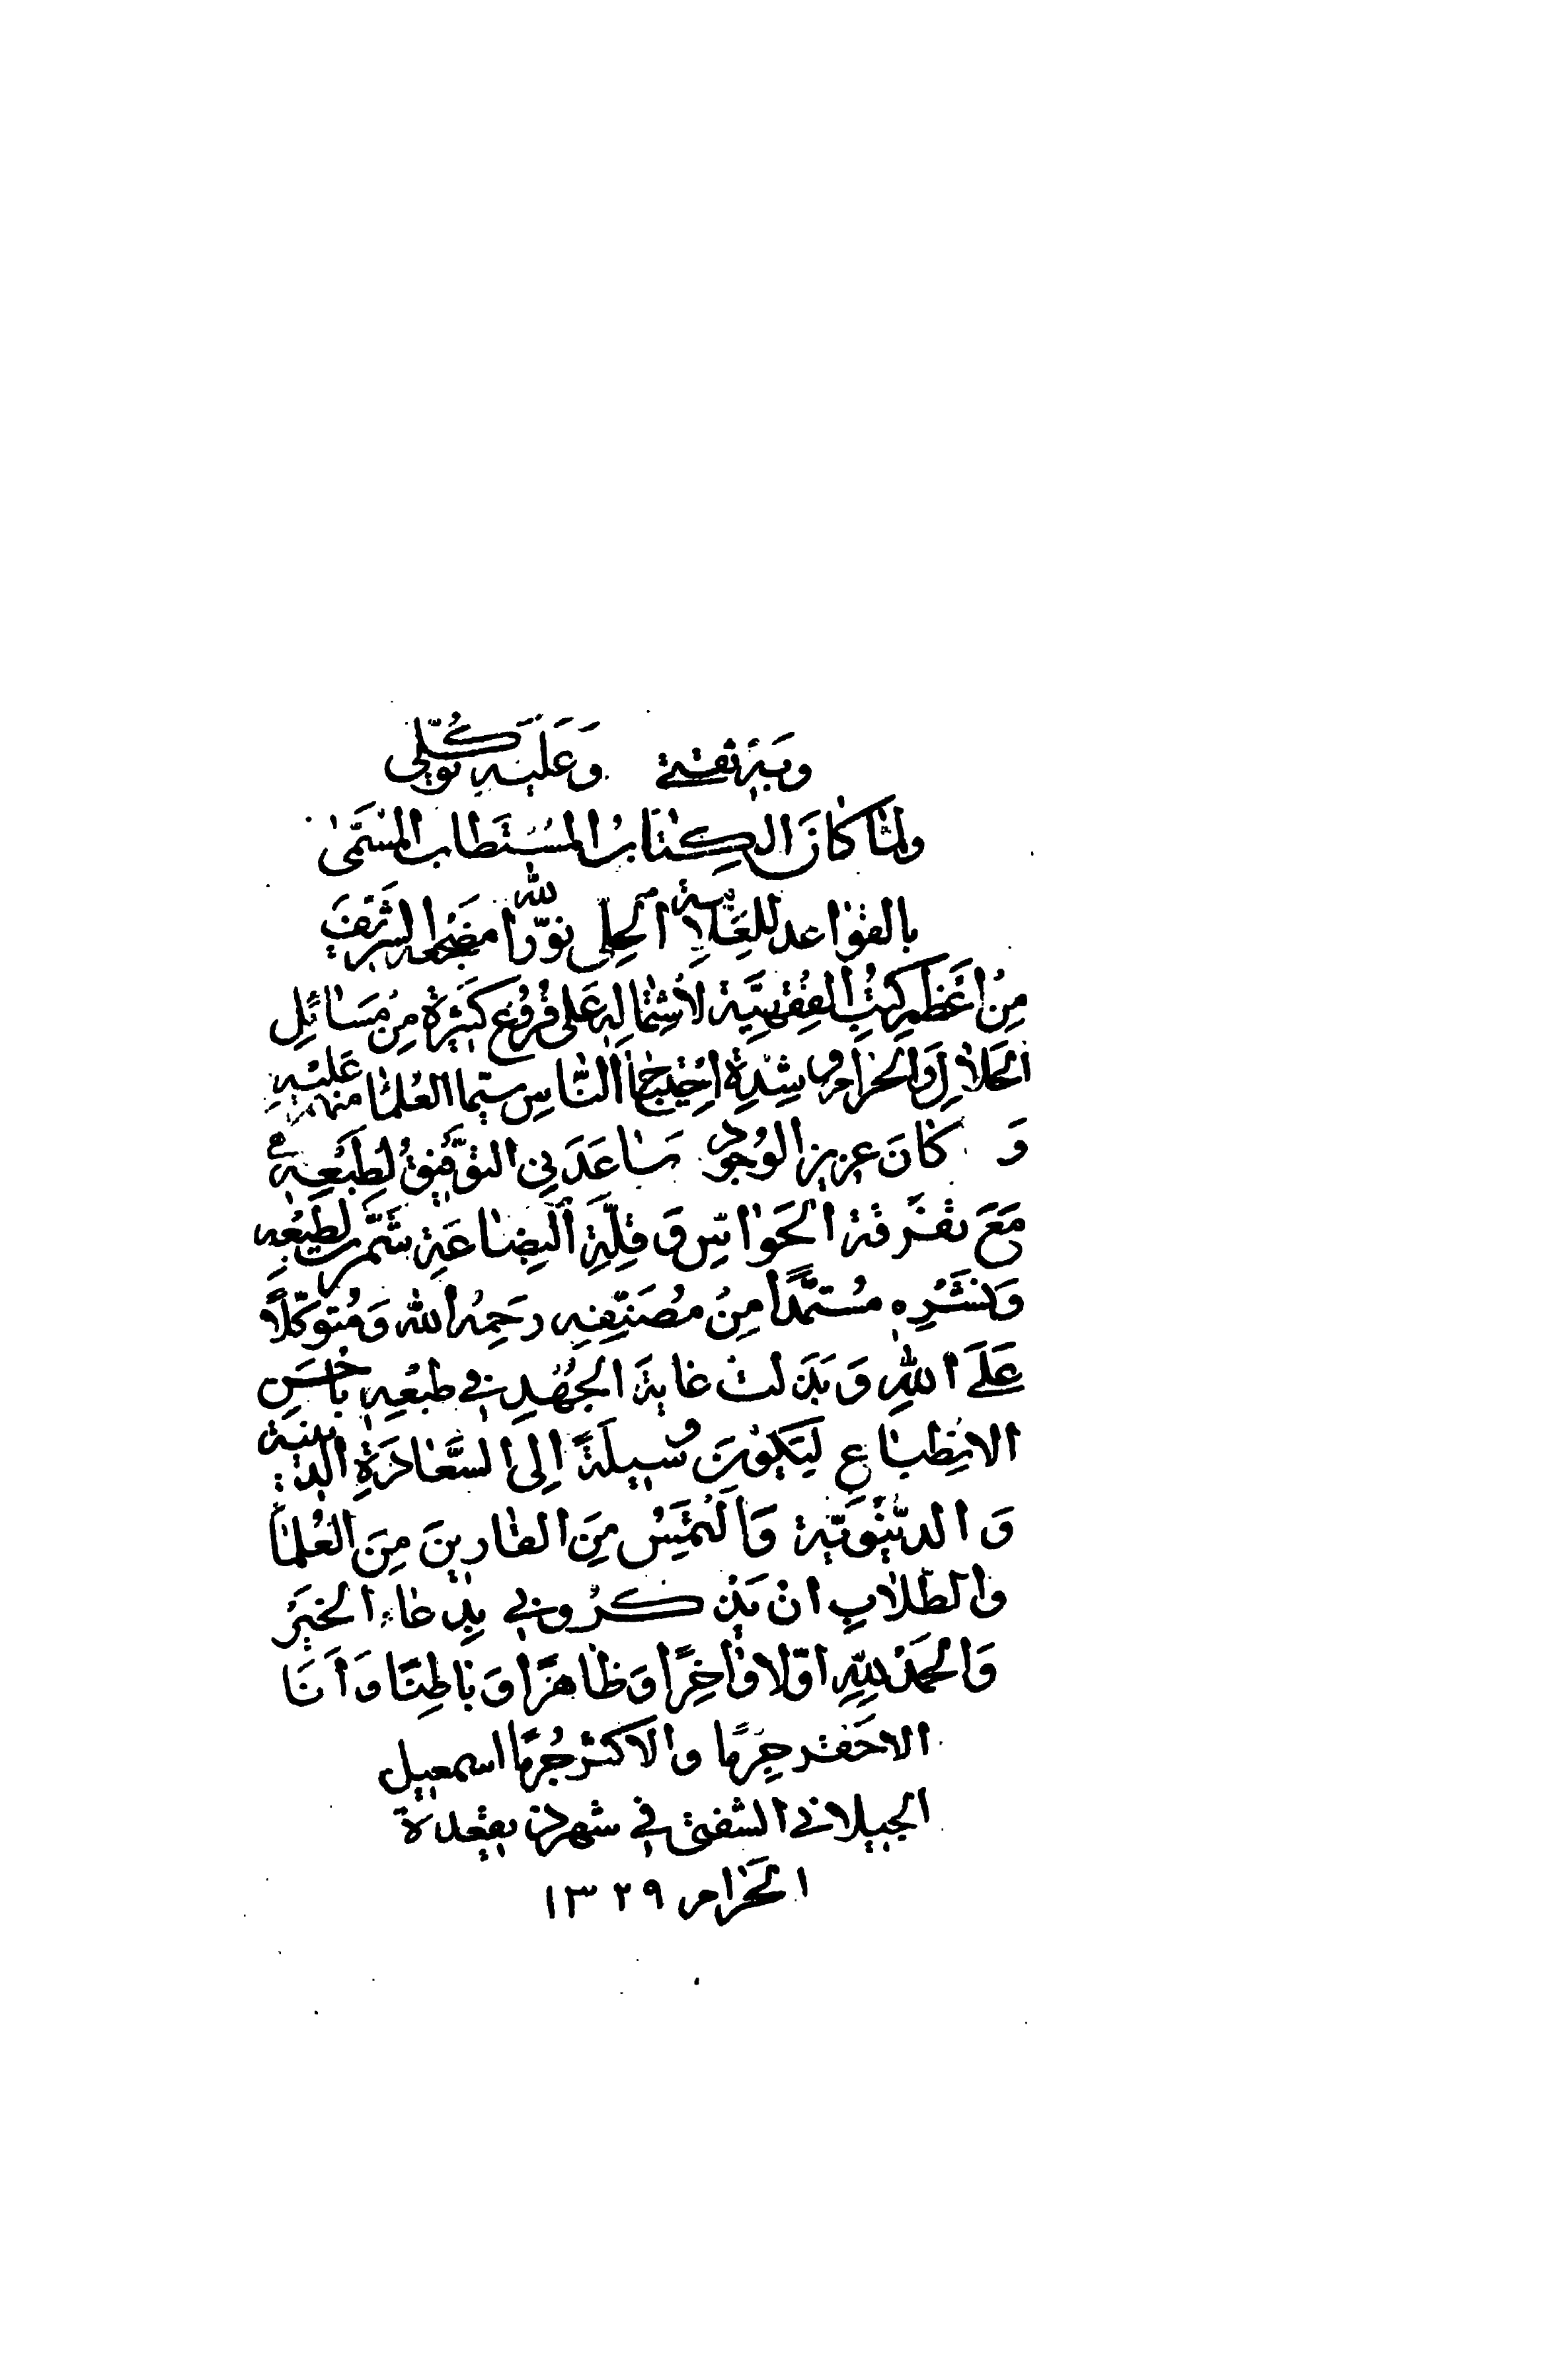 وَبِهِ ثِقَتي وَعَلَيْهِ تَوَكُّلي
وَلَمّٰا كٰانَ الْكِتٰابُ الْمُسْتَطٰاب الْمُسَمّىٰ
بِالقَوٰاعد لِلعَلّٰامَةِ الْحِلّى نوّر اللّٰه مَضْجَعه الشَريفَ
مِنْ اَعْظَمِ كُتُبِ الْفِقْهِيَّةِ لاشْتِمٰالِهِ عَلىٰ فُرُوعٍ كَثيرَةٍ مِنْ مَسٰائِلِ
الْحَلاٰلِ وَالْحَرٰامِ وَ شِدَّةِ احْتِيٰاجِ النّٰاسِ سِيَّما العُلَمٰا مِنْهُمْ عَلَيْهِ
وَ كٰانَ عَزيزَ الْوُجُودِ سٰاعَدَنِى التَّوْفيقُ لِطَبْعِهِ
مَعَ تَفَرُّقَةِ الْحَوٰاسِّ وَ قِلَّةِ الْبِضٰاعَةِ شَمَّرْتُ لِطَبْعِهِ
وَ نَشْرِهِ مُسْتَمِدًّا مِنْ مُصَنِّفِهِ رَحِمَهُ اللّٰه وَ مُتَوَكِّلًا
عَلَى اللّٰهِ وَ بَذَلْتُ غٰايَةَ الْجُهْدِ فى طَبْعِهِ بِاَحْسَنِ
الانْطِبٰاعِ لِيَكُونَ وَسيلَةً اِلَى السَّعٰادَةِ الدّينِيَّة
وَ الدُّنْيَوِيَّةِ وَ اَلْتَمِسُ مِنَ القٰارِينَ مِنَ الْعُلَمٰا
وَ الطُّلّٰابِ اَنْ يَذْكُرُونى بِدُعٰاءِ الْخَيْرِ
وَ الْحَمْدُ لِلّٰهِ اَوّلًا وَ اٰخِرًا وَ ظٰاهِرًا وَ بٰاطِنًا وَ اَنَا
الاَحْقَر جِرْمًا وَ الاَكْثَر جُرْمًا اسمعيل
الجيلانى الشفتى فى شهر ذيقعدة
الْحَرٰام ١٣٢٩